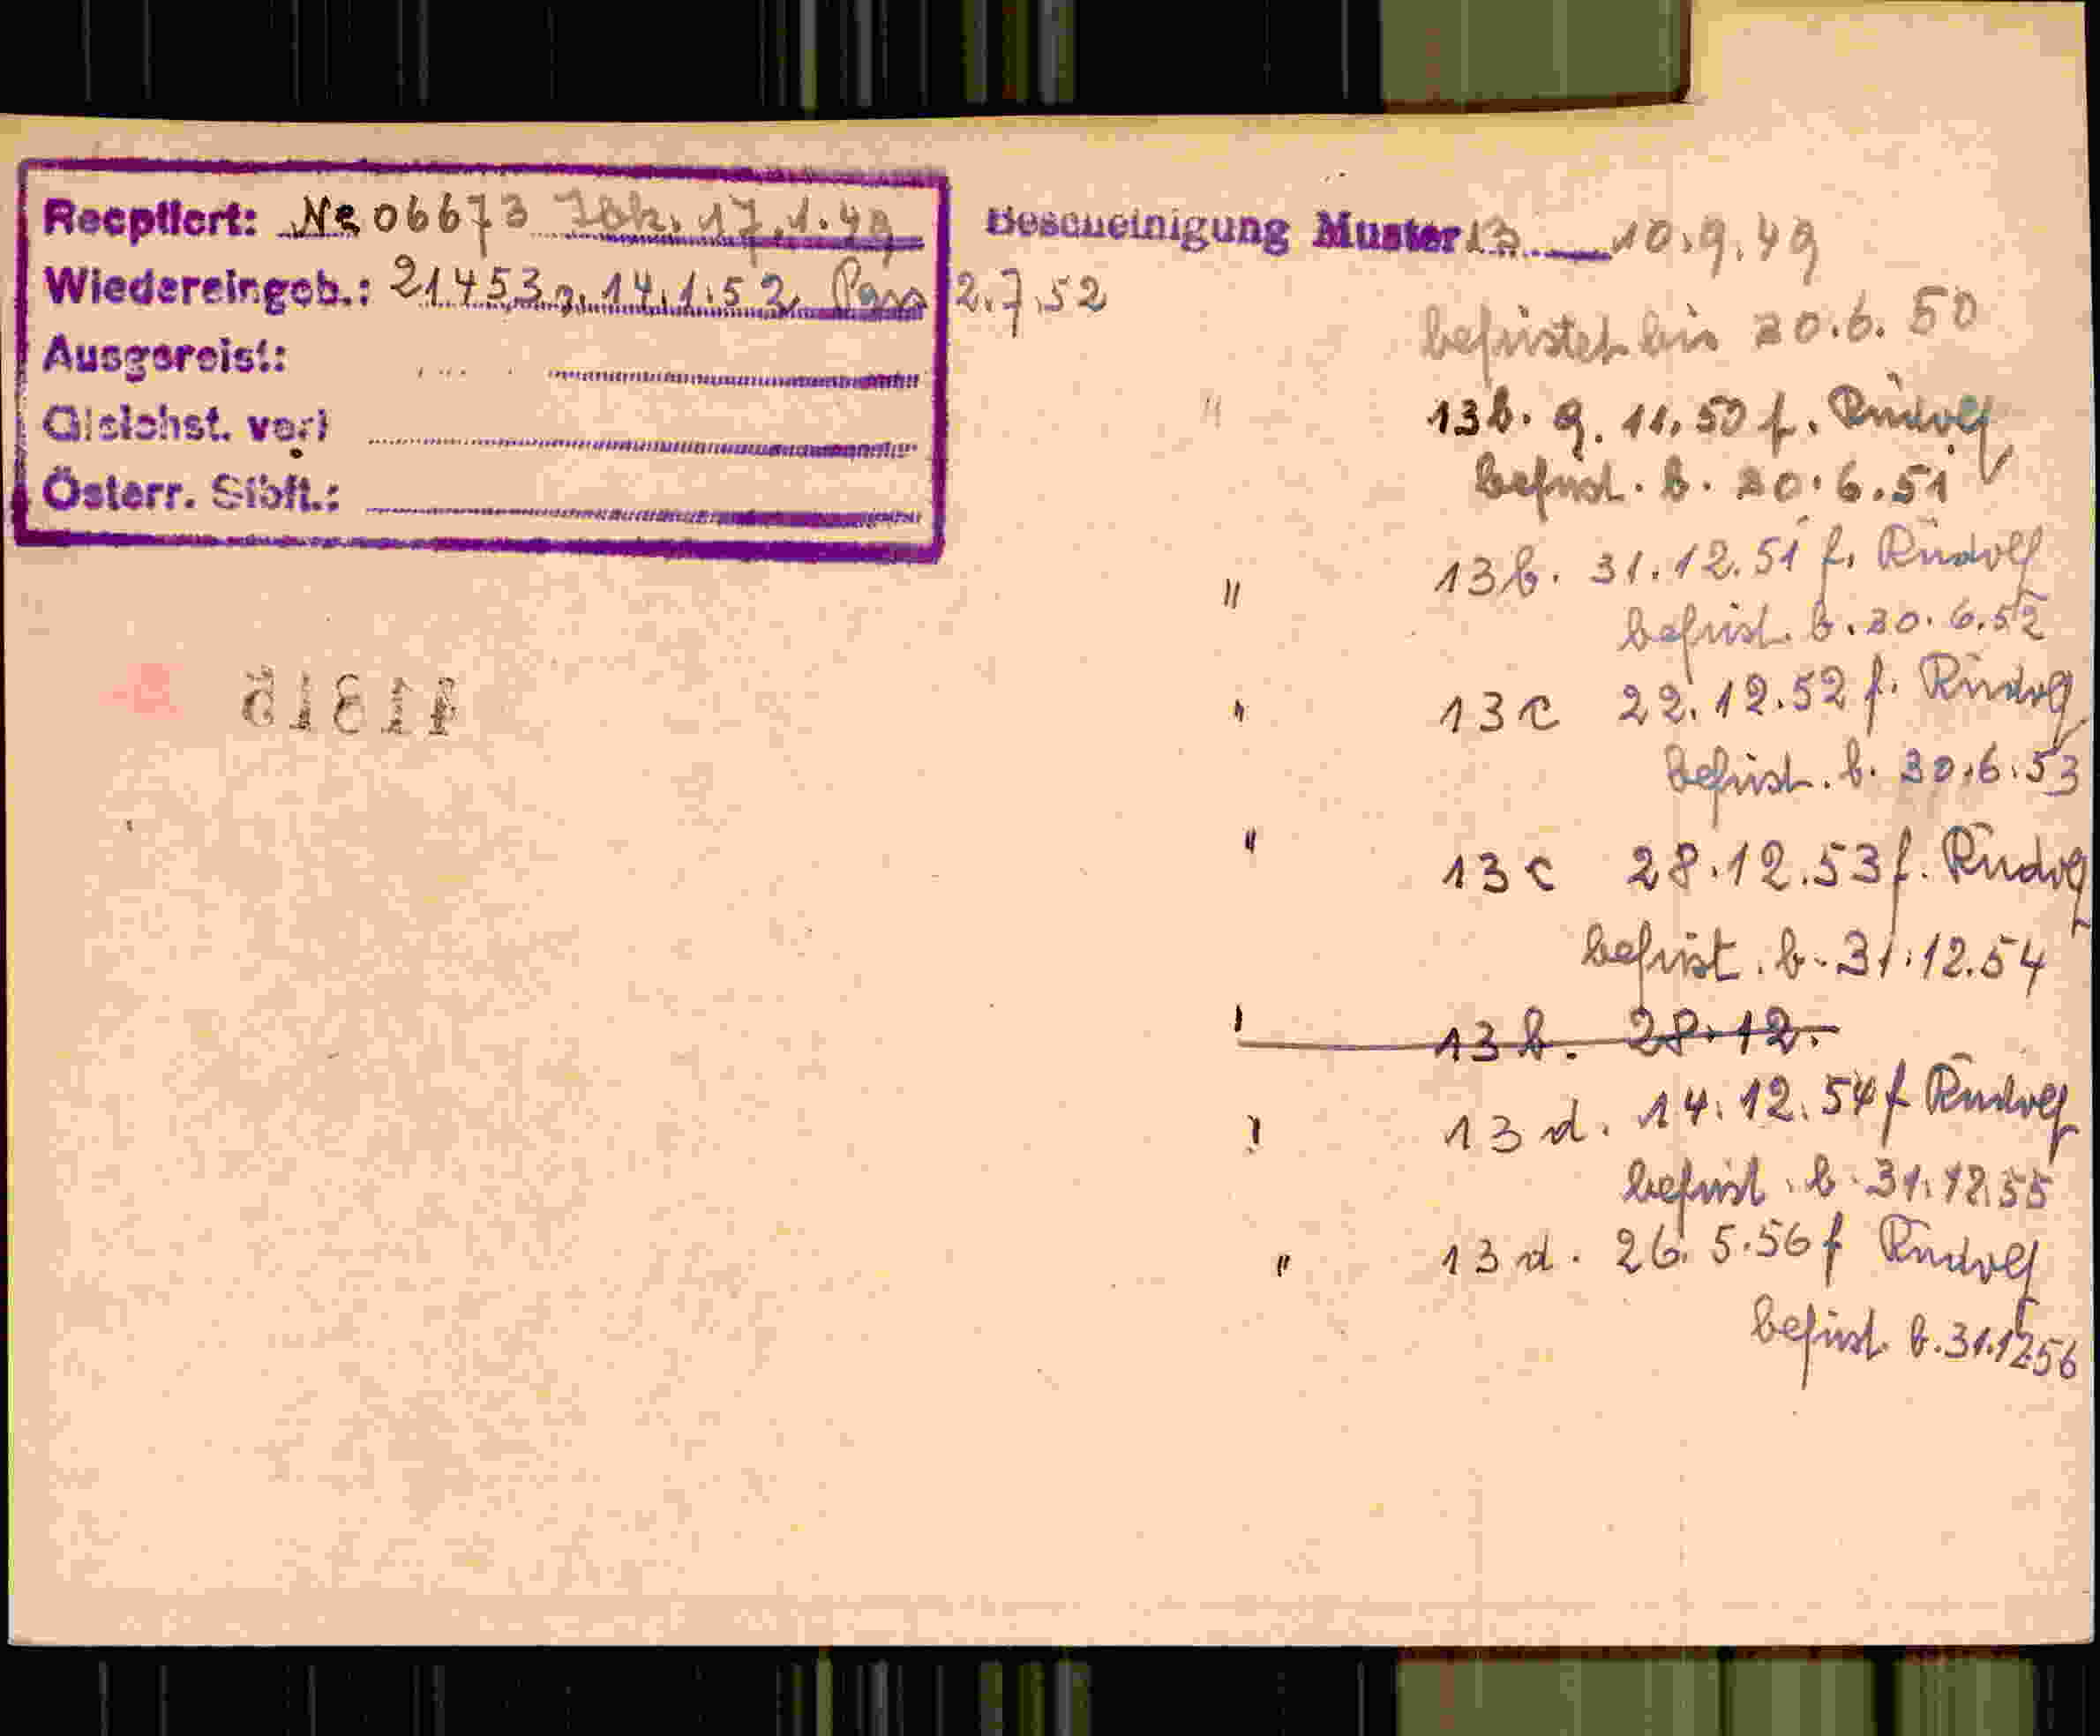 Recptiert: № 06673 Ibk. 17.1.49
Wiedereingeb.: 21453 14.1.52 Pass 2.7.52
Ausgereist:
Gleichst. verl
Österr. Stbft.:
Bescheinigung Muster 13 10.9.49
befristet bis 30.6.50
" 13b. 9.11.50 f. Rudolf
befrist. b. 30.6.51
" 13b. 31.12.51 f. Rudolf
befrist. b. 30.6.52
" 13c 22.12.52 f. Rudolf
befrist. b. 30.6.53
" 13c 28.12.53 f. Rudolf
befrist. b. 31.12.54
13b. 28.12.
" 13d. 14.12.54 f Rudolf
befrist. b. 31.12.55
" 13d. 26.5.56 f Rudolf
befrist. b. 31.12.56